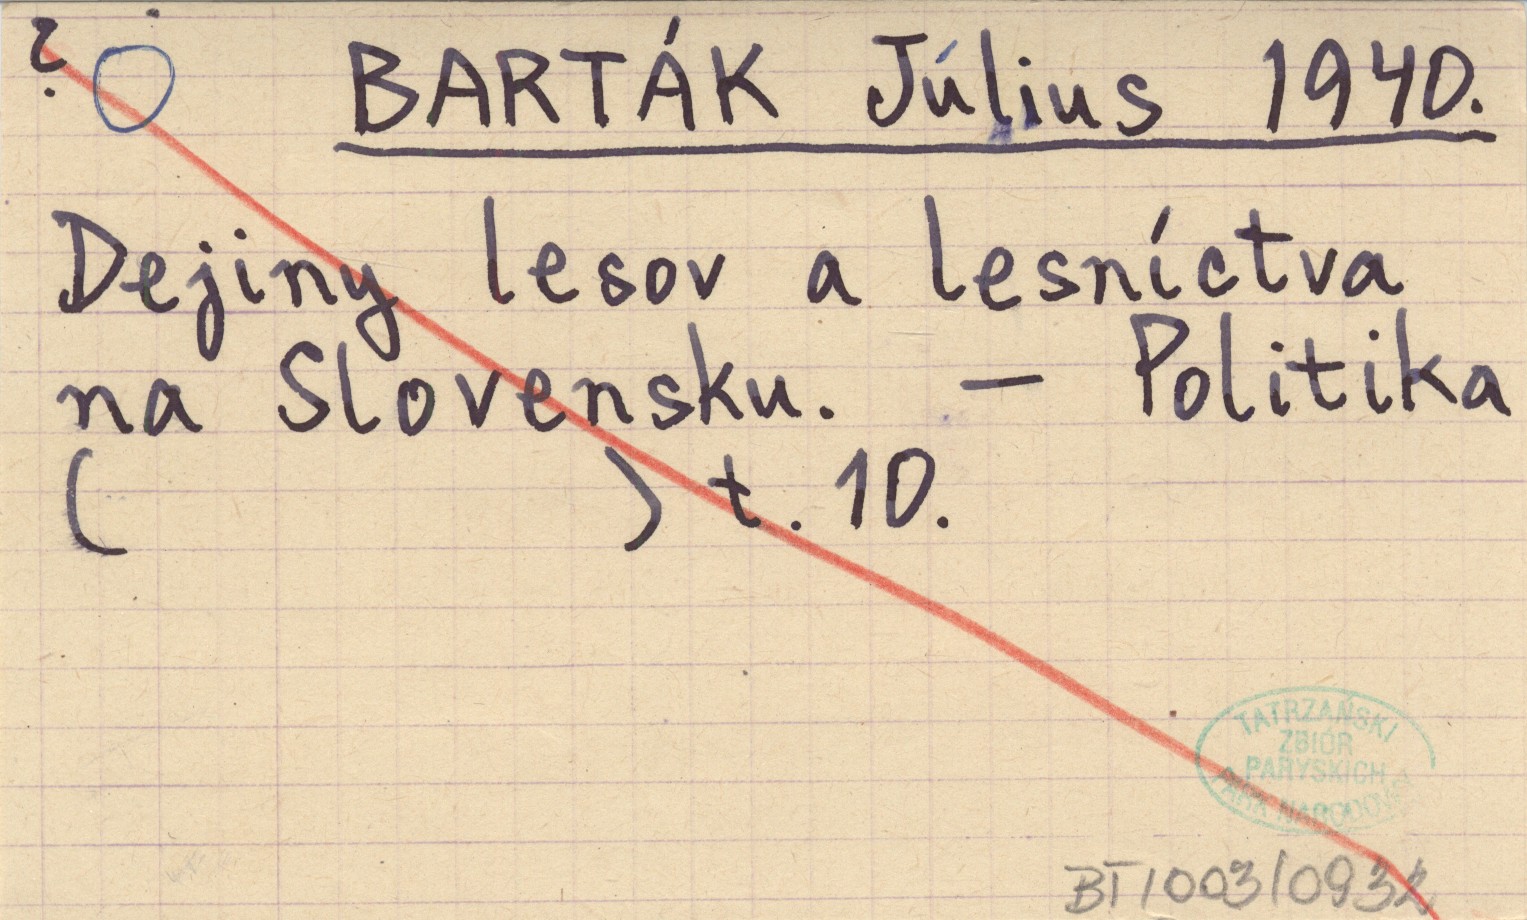 ? BARTÁK Július 1940.
Dejiny lesov a lesníctva
na Slovensku. — Politika
( ) t. 10.
TATRZAŃSKI
ZBIÓR
PARYSKICH
PARK NARODOWY
BT/003/0932